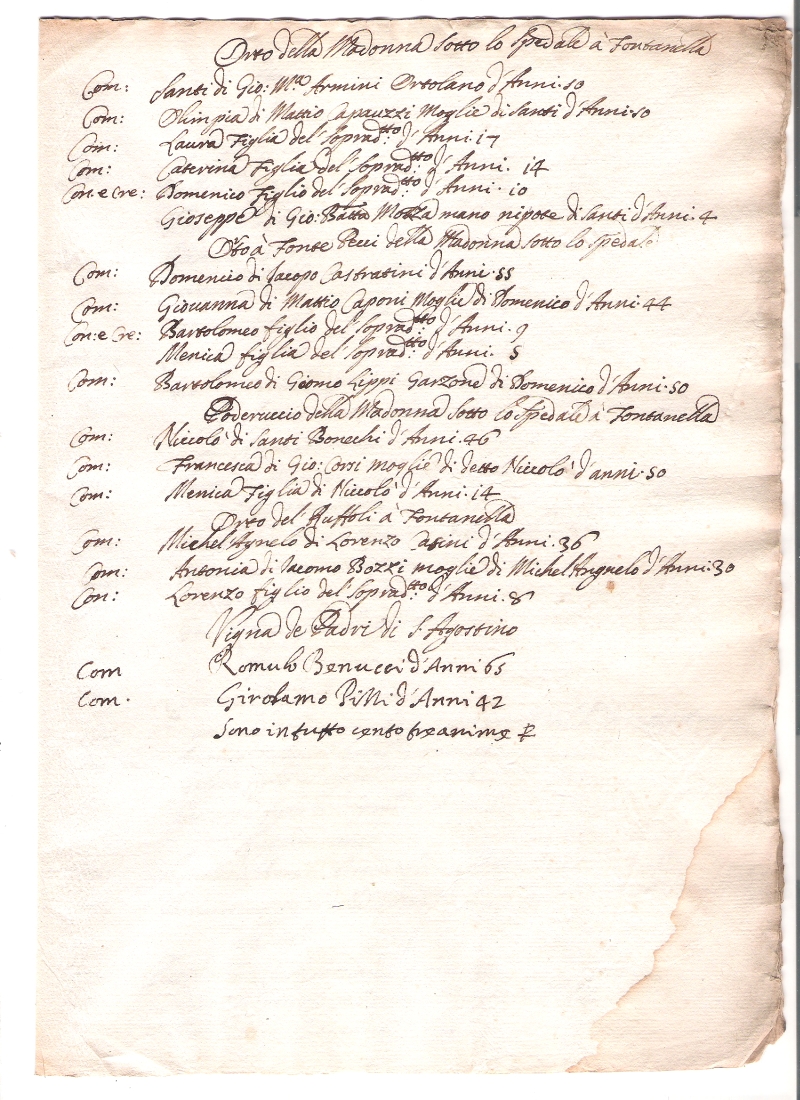 Orto della Madonna sotto lo Spedale à Fontanella
Com: Santi di Gio: Mra Armini Ortolano d'Anni. 50
Com: Olimpia di Mattio Capauzzi Moglie di Santi d'Anni. 50
Com: Laura Figlia del Soprad:tto d'Anni. 17
Com: Caterina Figlia del Soprad:tto d'Anni. 14
Con. e Cre: Domenico Figlio del Soprad:tto d'Anni. 10
Gioseppe di Gio: Batta mano nipote di Santi d'Anni. 4
Orto à Fonte Pecci della Madonna sotto lo spedale
Com: Domenicio di Jacopo Castratini d'Anni. 55
Com: Giovanna di Mattio Caponi Moglie di Domenico d'Anni. 44
Con: e Cre: Bartolomeo figlio del Soprad:tto d'Anni. 9
Menica figlia del Soprad:tto d'Anni. 5
Com: Bartolomeo di Giomo Lippi Garzone di Domenico d'Anni. 50
Poderuccio della Madonna sotto lo Spedale à Fontanella
Com: Niccolò di Santi Bonechi d'Anni. 46
Com: Francesca di Gio: Corsi moglie di detto Niccolò d'anni. 50
Com: Menica Figlia di Niccolò d'Anni. 14
Orto del Ruffoli à Fontanella
Com: Michel'Agnelo di Lorenzo Casini d'Anni. 36
Com: Antonia di Jacomo Bozzi moglie di Michel'Angnelo d'Anni. 30
Con: Lorenzo figlio del Soprad:tto d'Anni. 8
Vigna de Padri di S. Agostino
Com Romulo Benucci d'Anni 65
Com. Girolamo Pilli d'Anni 42
Sono in tutto cento tre anime